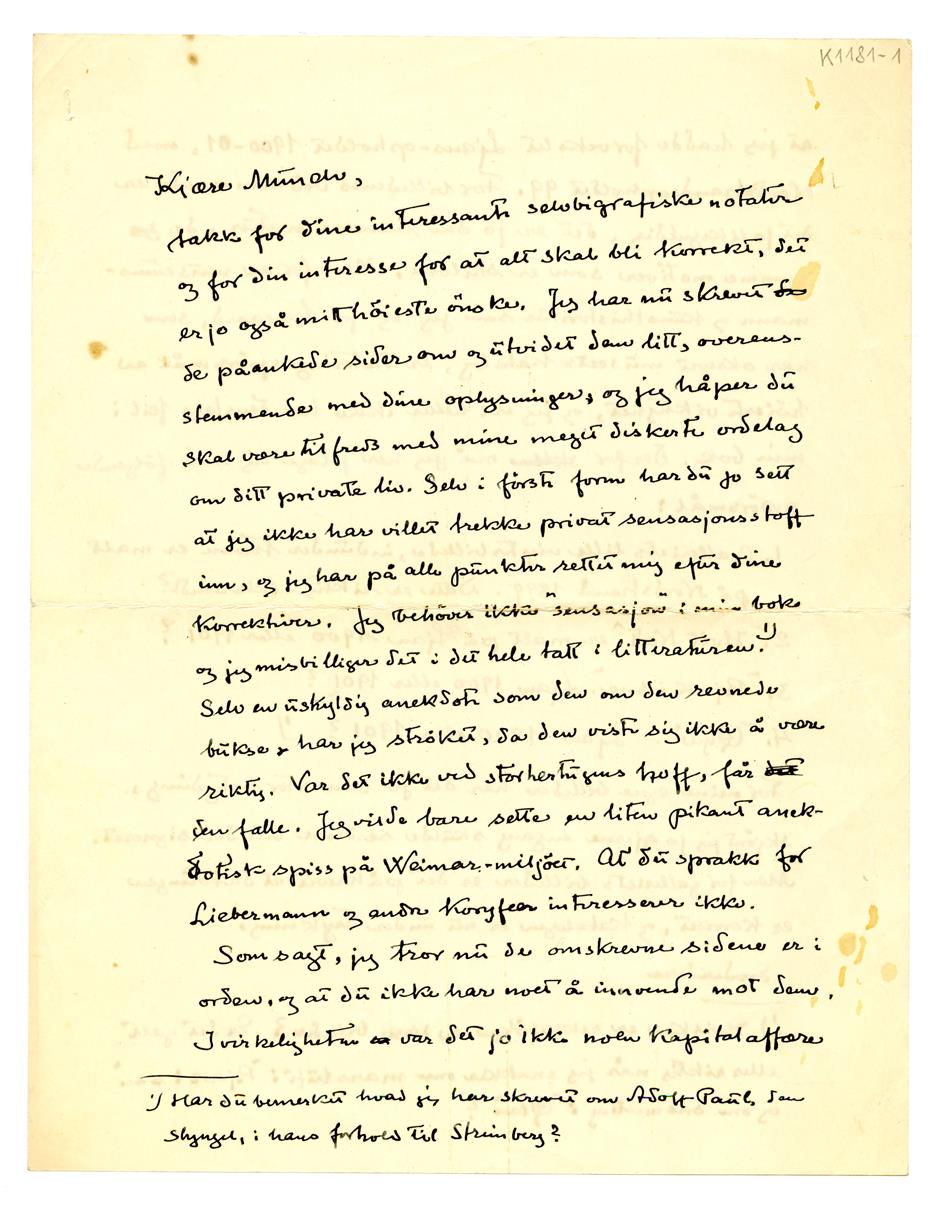 K1181-1
Kjære Munch,
takk for dine interessante selvbiografiske notater
og for din interesse for at alt skal bli korrekt, det
er jo også mitt höieste önske. Jeg har nu skrevet
de påankede sider om og utvidet dem litt, overens-
stemmende med dine oplysninger, og jeg håper du
skal være tilfreds med mine meget diskerte ordelag
om ditt private liv. Selv i förste form har du jo sett
at jeg ikke har villet trekke privat sensasjonsstoff
inn, og jeg har på alle punkter rettet mig efter dine
korrektiver. Jeg behöver ikke "sensasjon" i min bok
og jeg misbilliger det i det hele tatt i litteraturen.¹⁾
Selv en uskyldig anekdote som den om den revnede
bukse har jeg ströket, da den viste sig ikke å være
riktig. Var det ikke ved storhertugens hoff, får
den falle. Jeg vilde bare sette en liten pikant anek-
dotisk spiss på Weimar-miljöet. At du sprakk for
Liebermann og andre koryfeer interesserer ikke.
Som sagt, jeg tror nu de omskrevne sidene er i
orden, og at du ikke har noet å innvende mot dem.
I virkeligheten var det jo ikke noen kapital affære
¹⁾ Har du bemerket hvad jeg har skrevet om Adolf Paul, den
slyngel, i hans forhold til Strinberg?